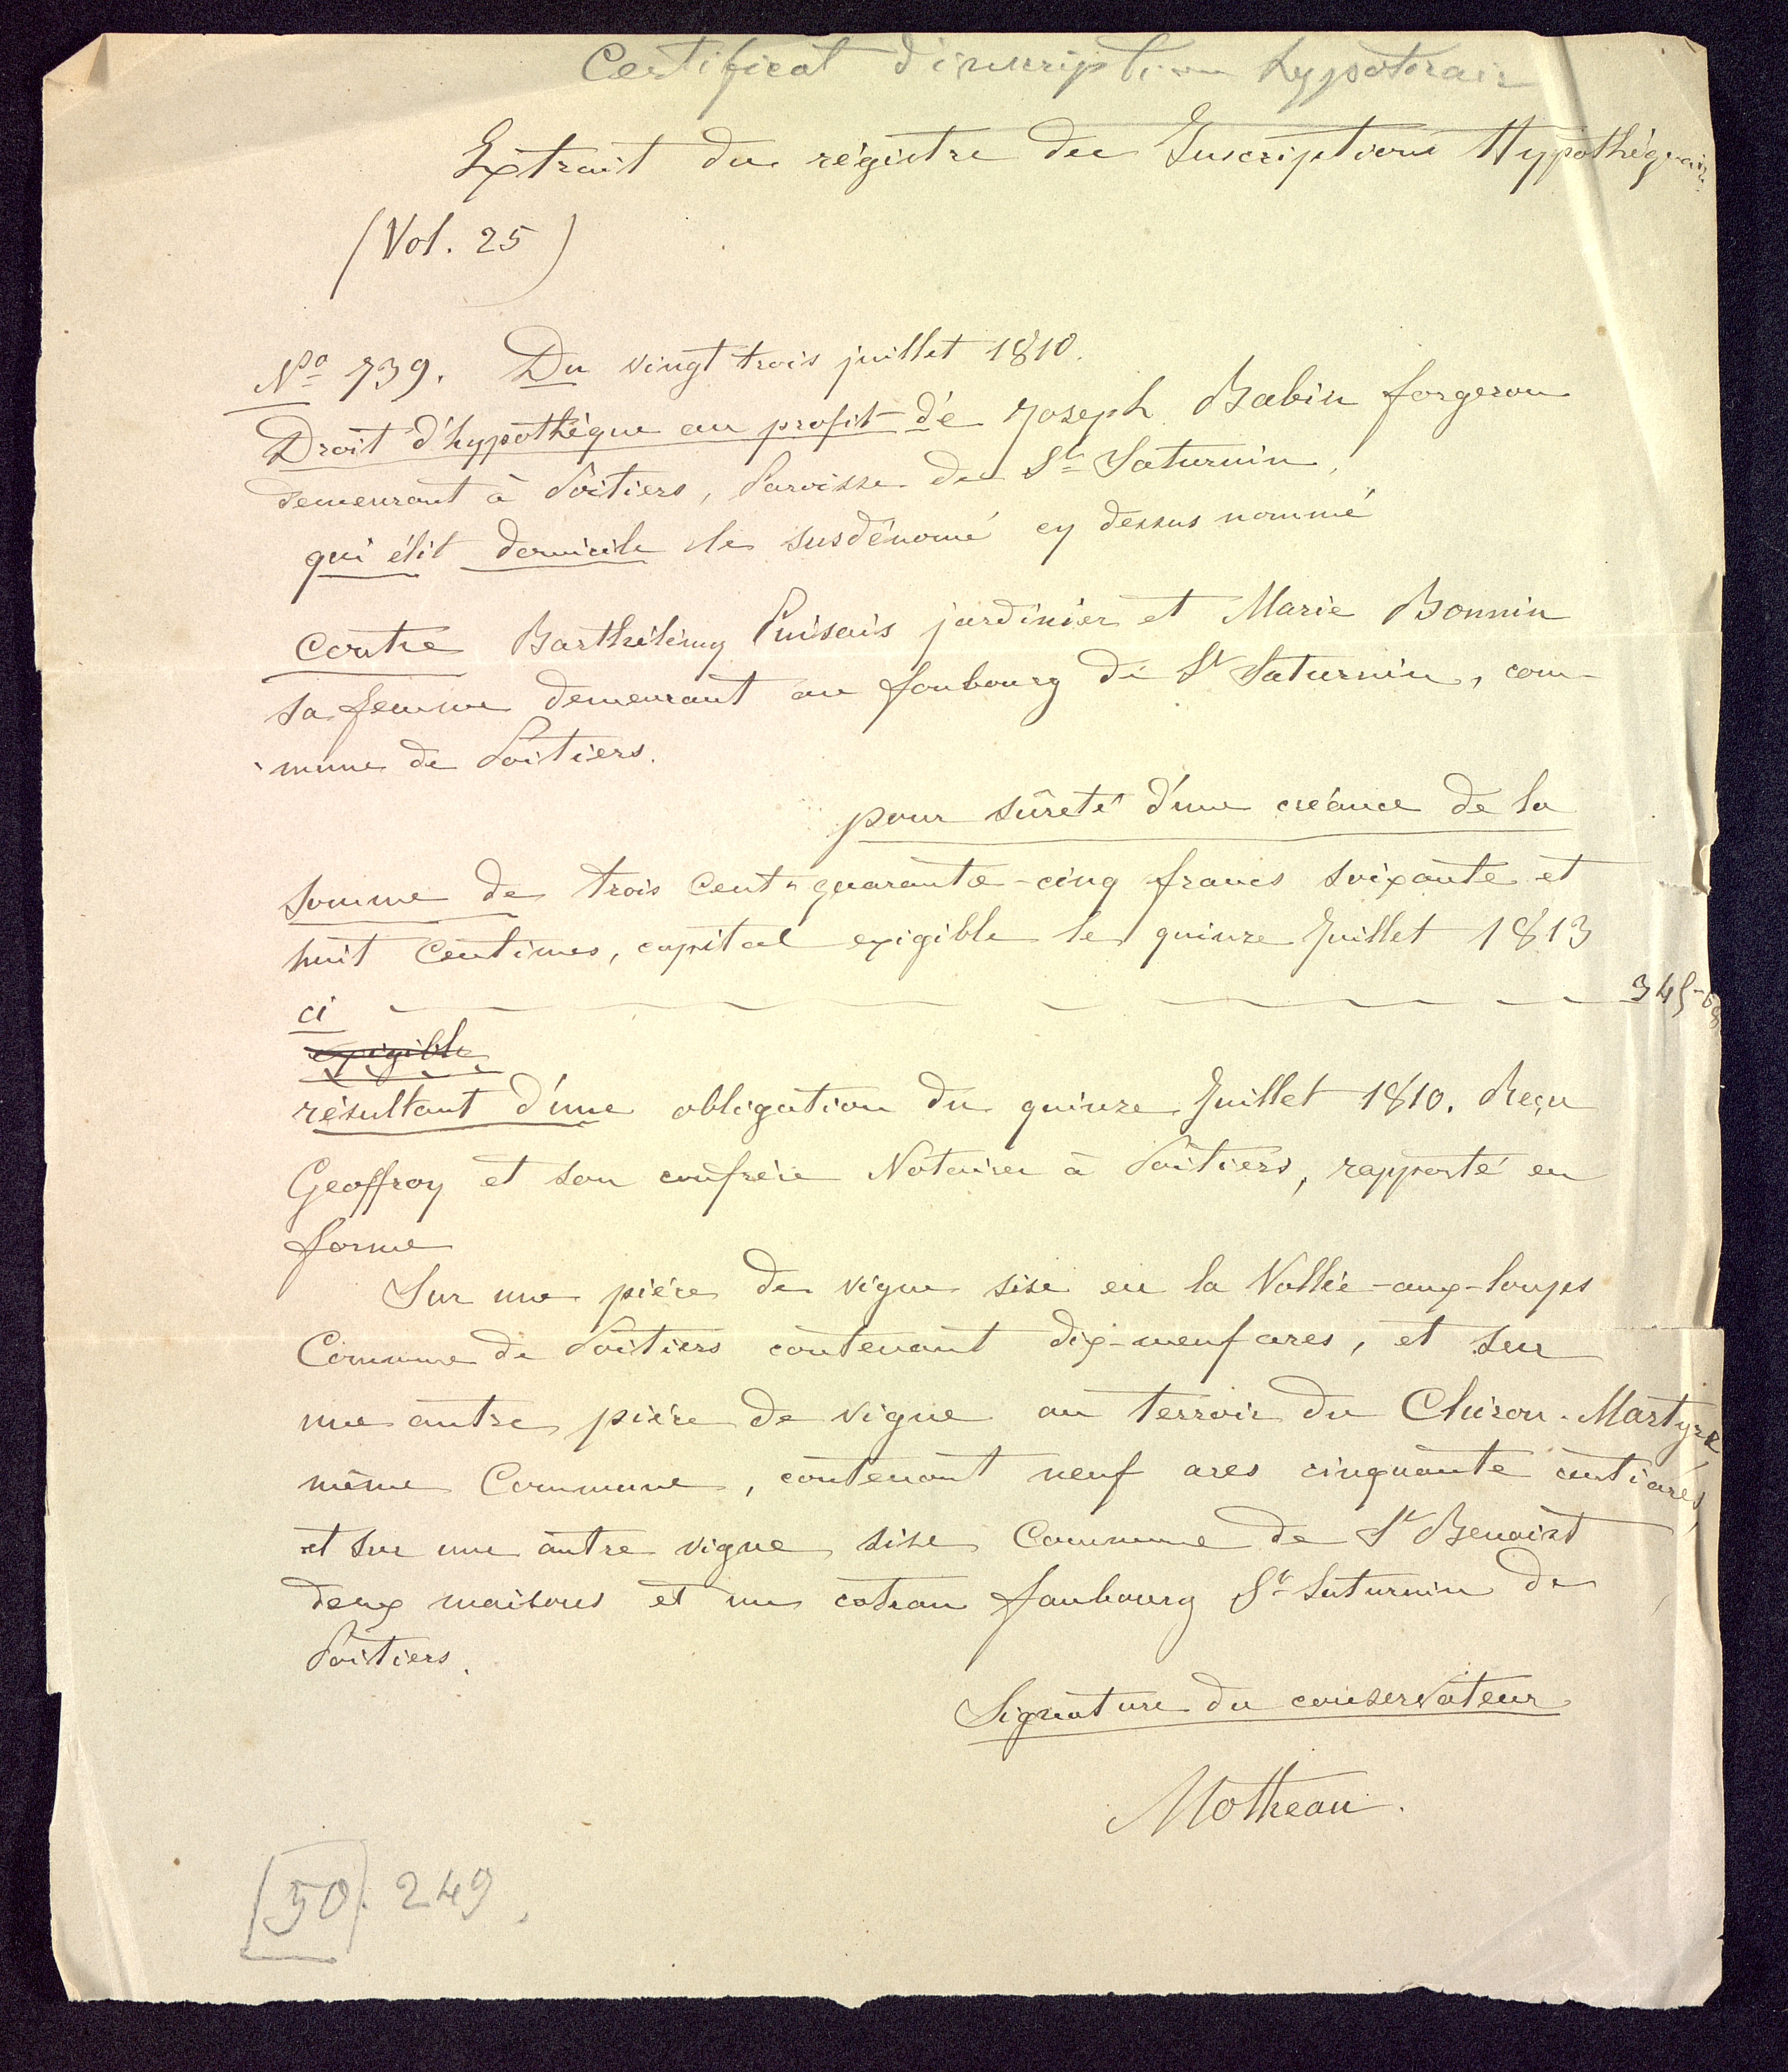 Certificat d'inscription hypotecair
Extrait du régistre des Inscriptions Hypothéquair.
(Vol. 25)
No 739. Du vingt trois juillet 1810.
Droit d'hypothéque au profit dé Joseph Babin forgeron
demeurant à Poitiers, Paroisse de St Saturnin,
qui élit domicile le susdénomé cy dessus nommé
contre Barthélémy Puisais jardinier et Marie Bonnin
sa femme demeurant au foubourg de St Saturnin, com-
mune de Poitiers.
pour sûreté d'une créance de la
somme de trois cent quarante-cinq francs soixante et
huit centimes, capital exigible le quinze Juillet 1813
ci 345-68
exigible
résultant d'une obligation du quinze Juillet 1810. Reçu
Geoffroy et son confrère Notaires à Poitiers, rapporté en
forme
Sur une piéce de vigne sise en la Vallée-aux-loups
Commune de Poitiers contenant dix-neuf ares, et sur
une autre piéce de vigne au terroir du Chiron-Martyre
même Commune, contenant neuf ares cinquante centiares,
et sur une autre vigne sise Commune de St Benoist
deux maisons et un coteau faubourg St Saturnin de
Poitiers.
Signature du conservateur
Motheau.
[50]. 249.